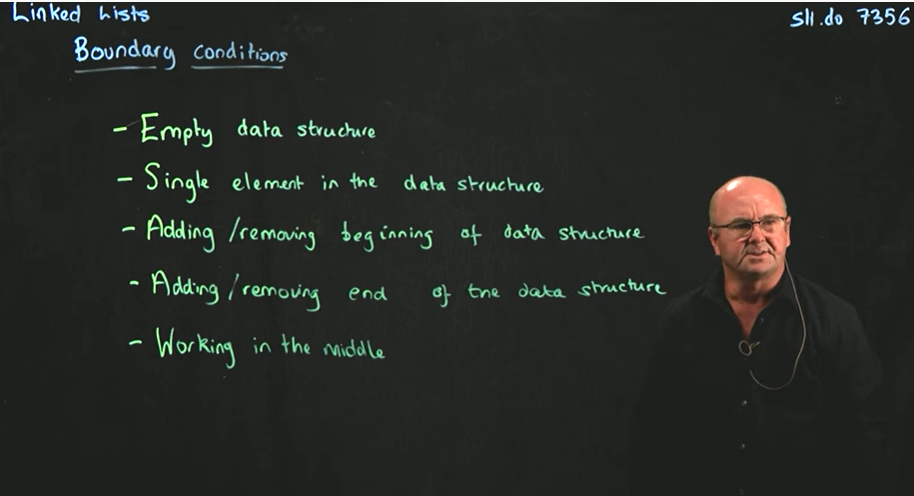 Linked Lists
sli.do 7356
Boundary conditions
- Empty data structure
- Single element in the data structure
- Adding/removing beginning of data structure
- Adding/removing end of the data structure
- Working in the middle